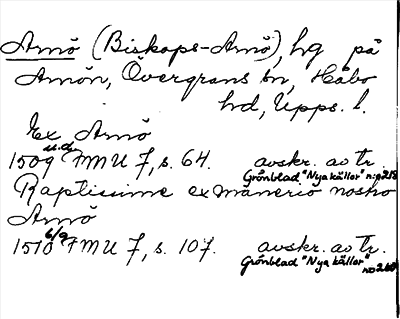 Arnö (Biskops-Arnö), hg på
Arnön, Övergrans sn, Håbo
hd, Upps. l.
Ex Arnö
u.d.
1509 FMU 7, s. 64. avskr. av tr.
Grönblad "Nya källor" n:o 218
Raptissime ex manerio nostro
Arnö
1510 6/9 FMU 7, s. 107. avskr. av tr.
Grönblad "Nya källor"